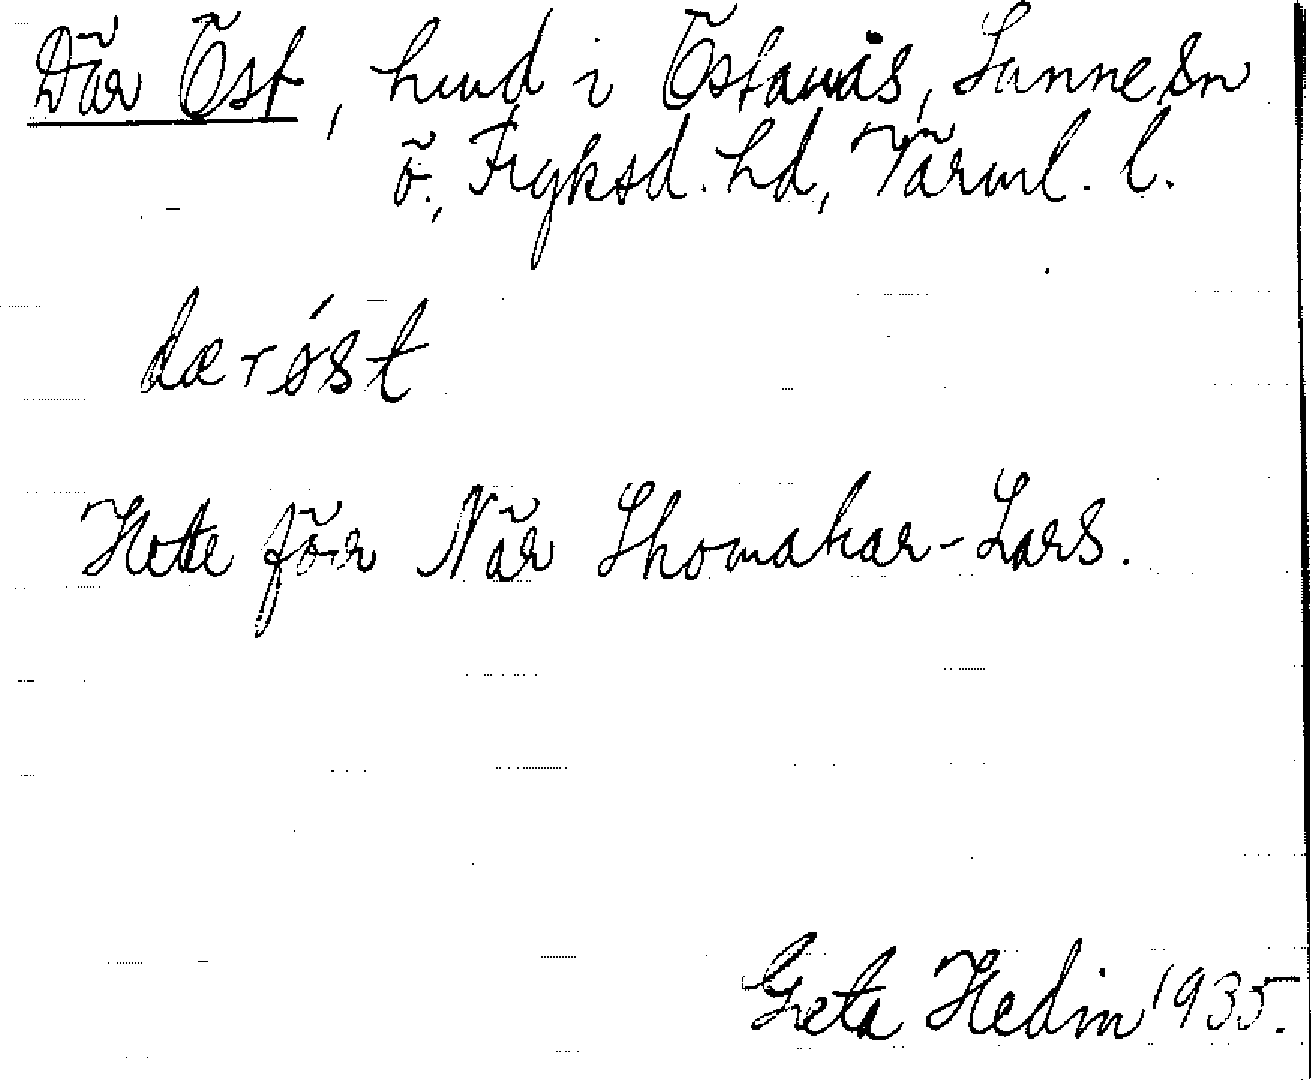 Där Öst, hmd i Östanås, Sunne sn
ö. Fryksd. hd, Värml. l.
dærö́st
Hette förr När Skomakar-Lars.
Greta Hedin 1935.